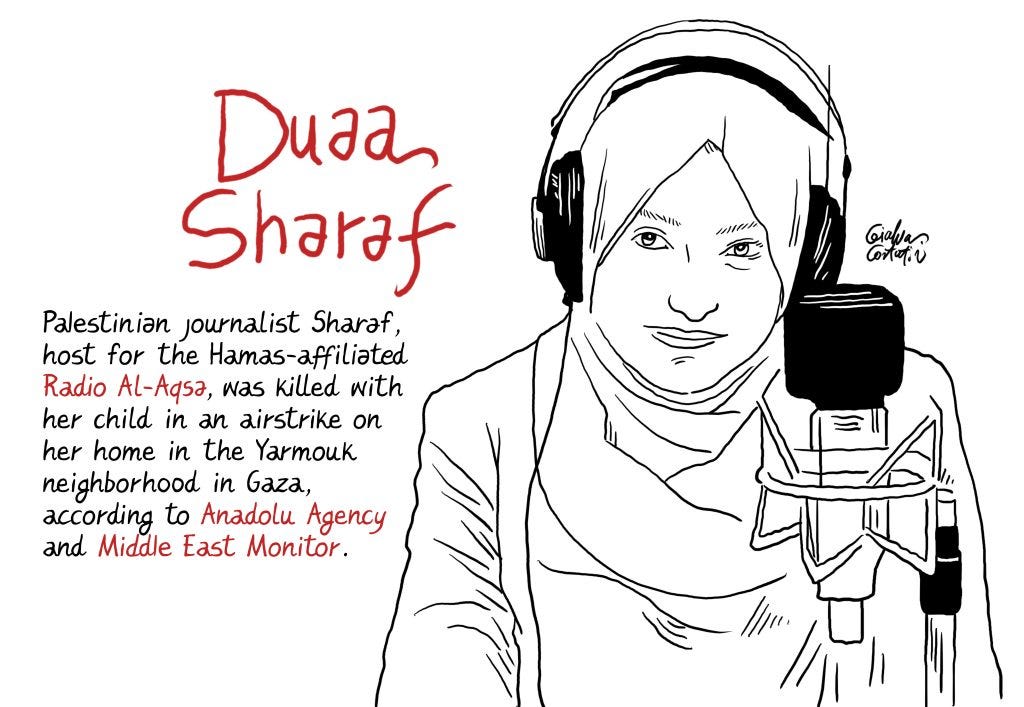 Duaa
Sharaf
Palestinian journalist Sharaf,
host for the Hamas-affiliated
Radio Al-Aqsa, was killed with
her child in an airstrike on
her home in the Yarmouk
neighborhood in Gaza,
according to Anadolu Agency
and Middle East Monitor.